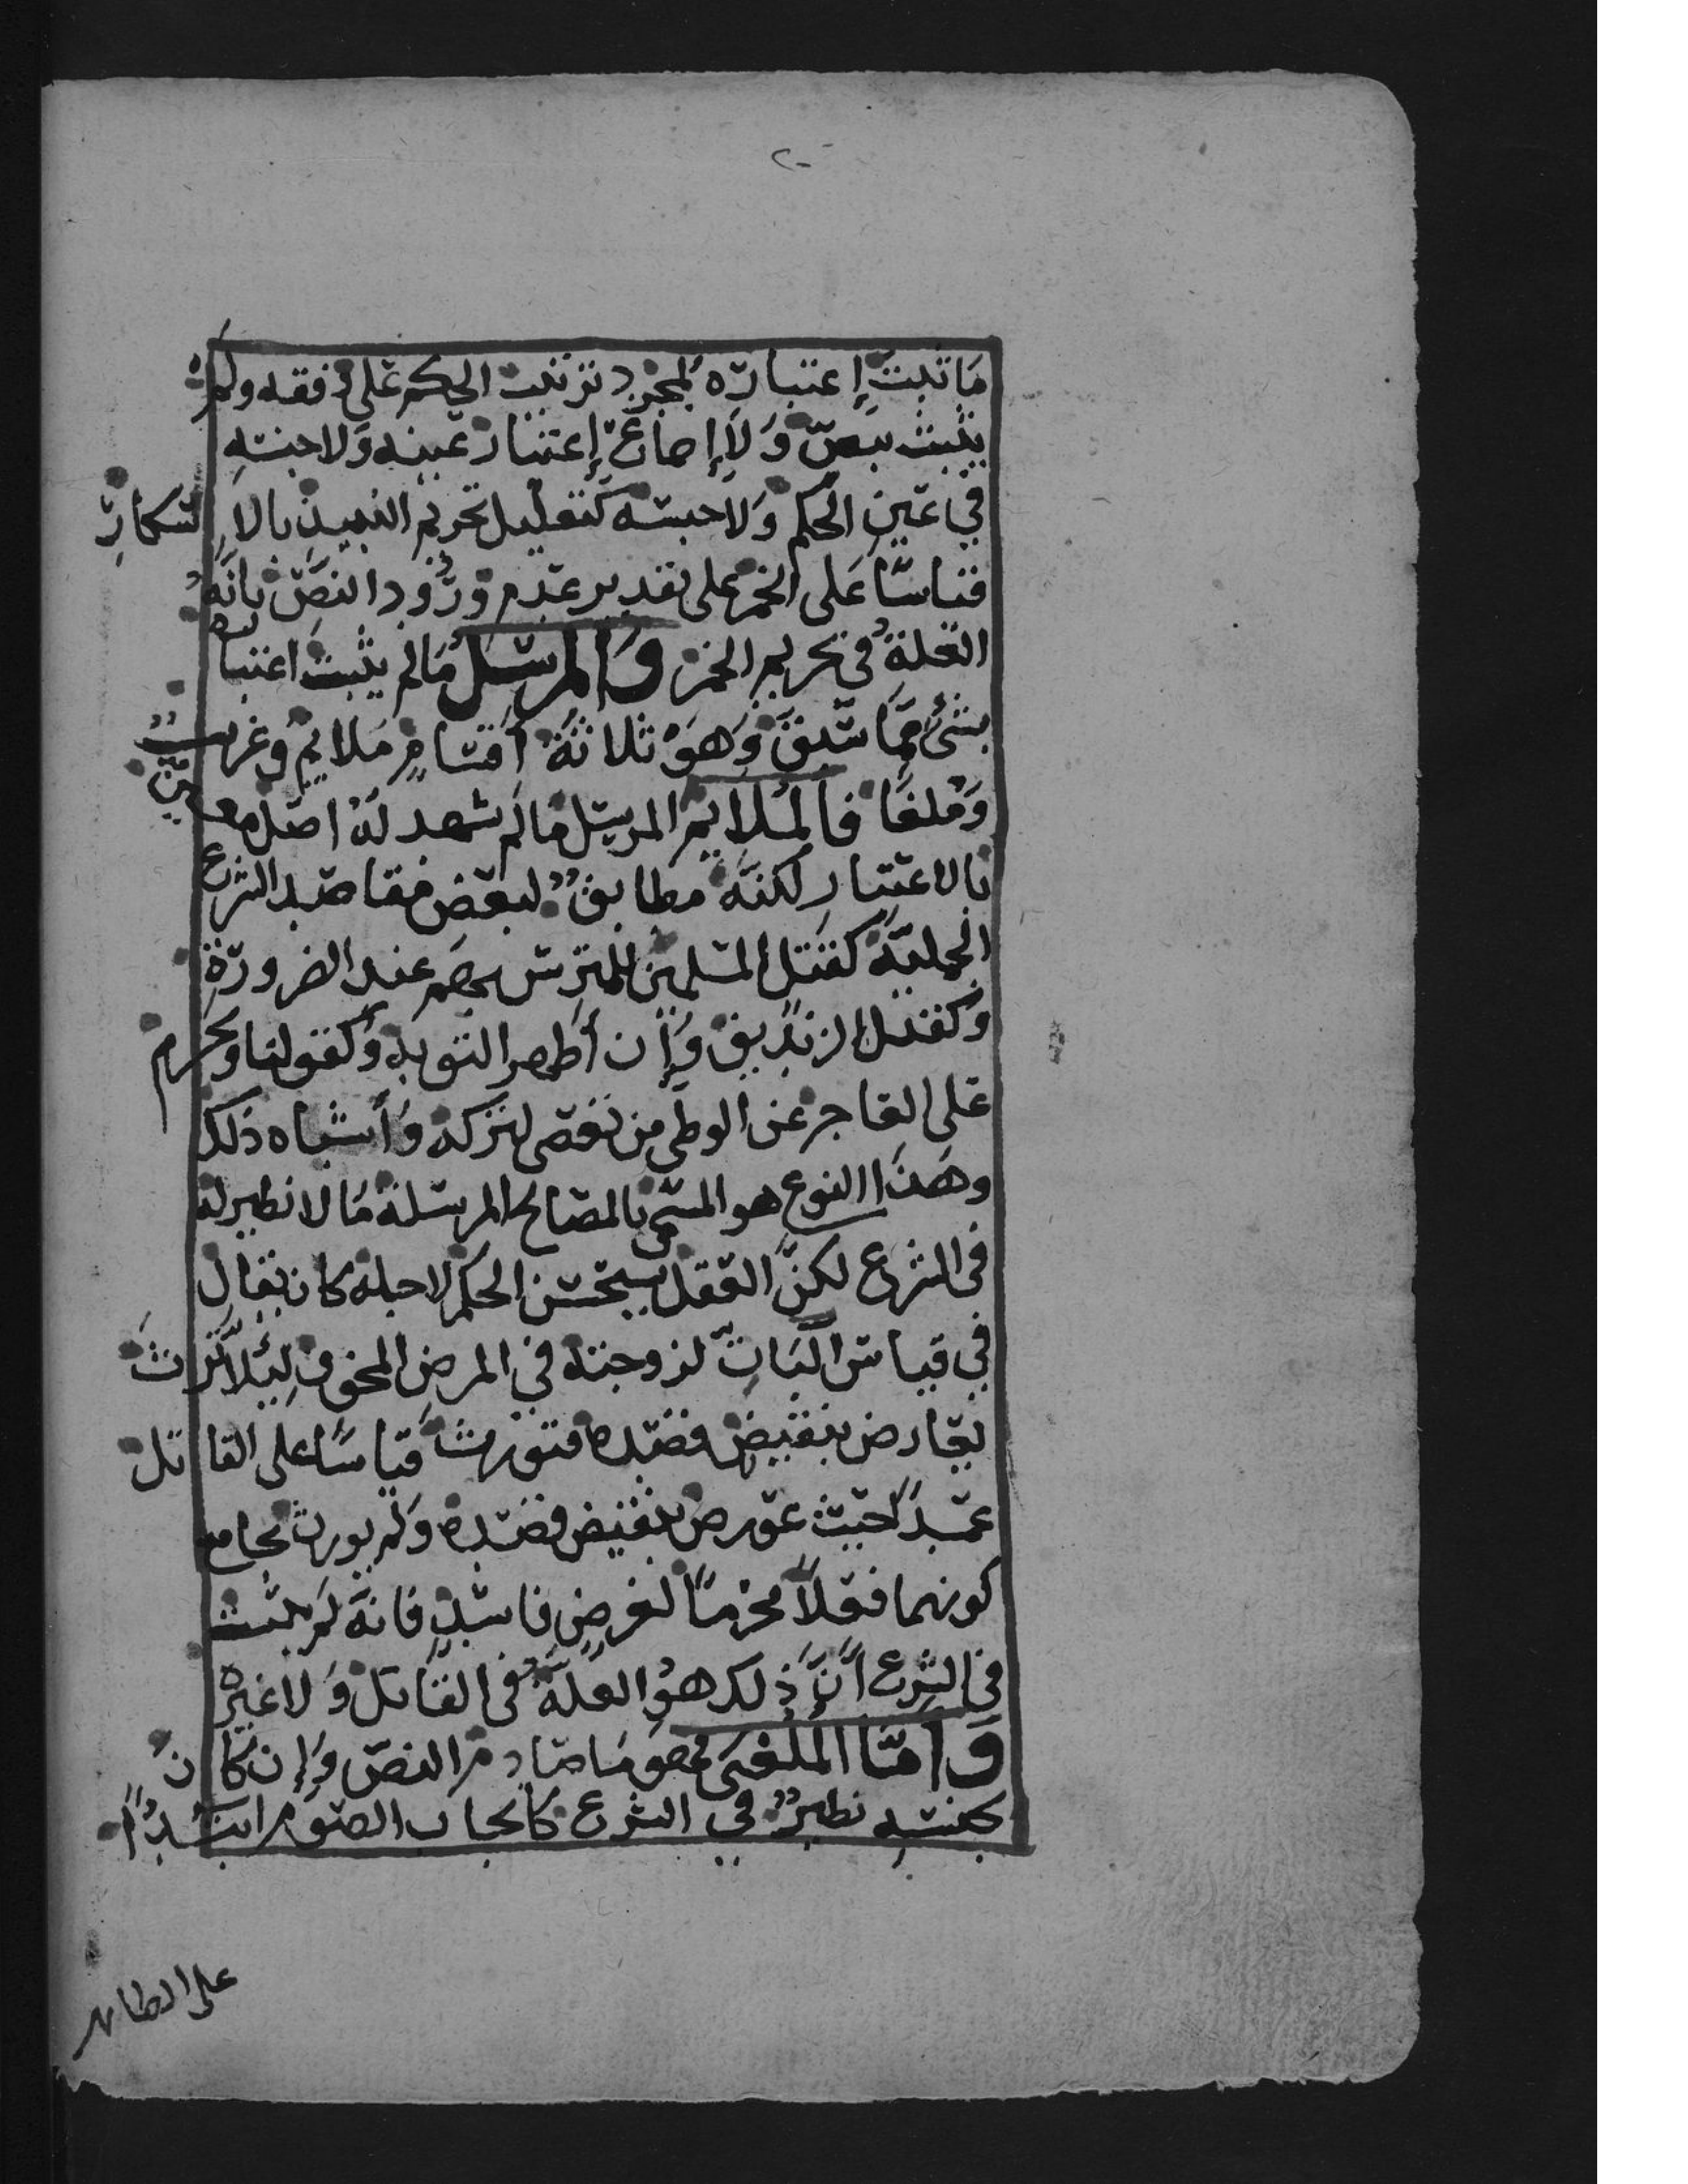 ٢٠
مَا ثبتَ إِعتبارُه لمجرد ترتيب الحكم على وفقه ولم
يثبت بنصّ وَلا إجماع إعتبار عينه وَلا جنسه
في عين الحكم وَلا جنسه كتعليل تحريم النبيذ بالاسكار
قياسًا عَلى الخمر على تقدير عدم ورُود النصّ بأنَّهُ
العلة في تحريم الخمر وَالمرسل مَا لم يثبت اعتباره
بشئ ممّا سبق وَهوَ ثلاثة أقسام ملايم وغريبٌ
وَملغًا فالملايم المرسل مَا لم يشهد له اصل معين
بالاعتبار لكنّه مطابقٌ لبعض مقاصد الشرع
الجملية كقتل المسلمين المترس بهم عند الضرورة
وَكقتل الزنديق وَإن أظهر التوبه وَكقولنا ويحرم
على العاجز عن الوطي من تعصى لتركه وَأشباه ذلك
وهَذَا النوع هو المسمى بالمصالح المرسلة مَا لا نظير له
في الشرع لكنَّ العقل يستحسن الحكم لاجله كان يقال
في قياس البَاتّ لزوجته في المرض المخوف لئلا ترث
يعارض بنقيض قصده فتورث قياسًا على القاتل
عمدًا حيث عورض بنقيض قصده وَلم يورث بجامع
كونهما فعلاً محرّمًا لغرض فاسد فانه لم يثبت
في الشرع أنَّ ذلك هو العلة في القاتل وَلا غيره
وَأمّا الملغى فهو مَا صادم النصّ وَإن كَانَ
لجنسه نظيرٌ في الشرع كايجاب الصوم ابتداً
على المظاهر